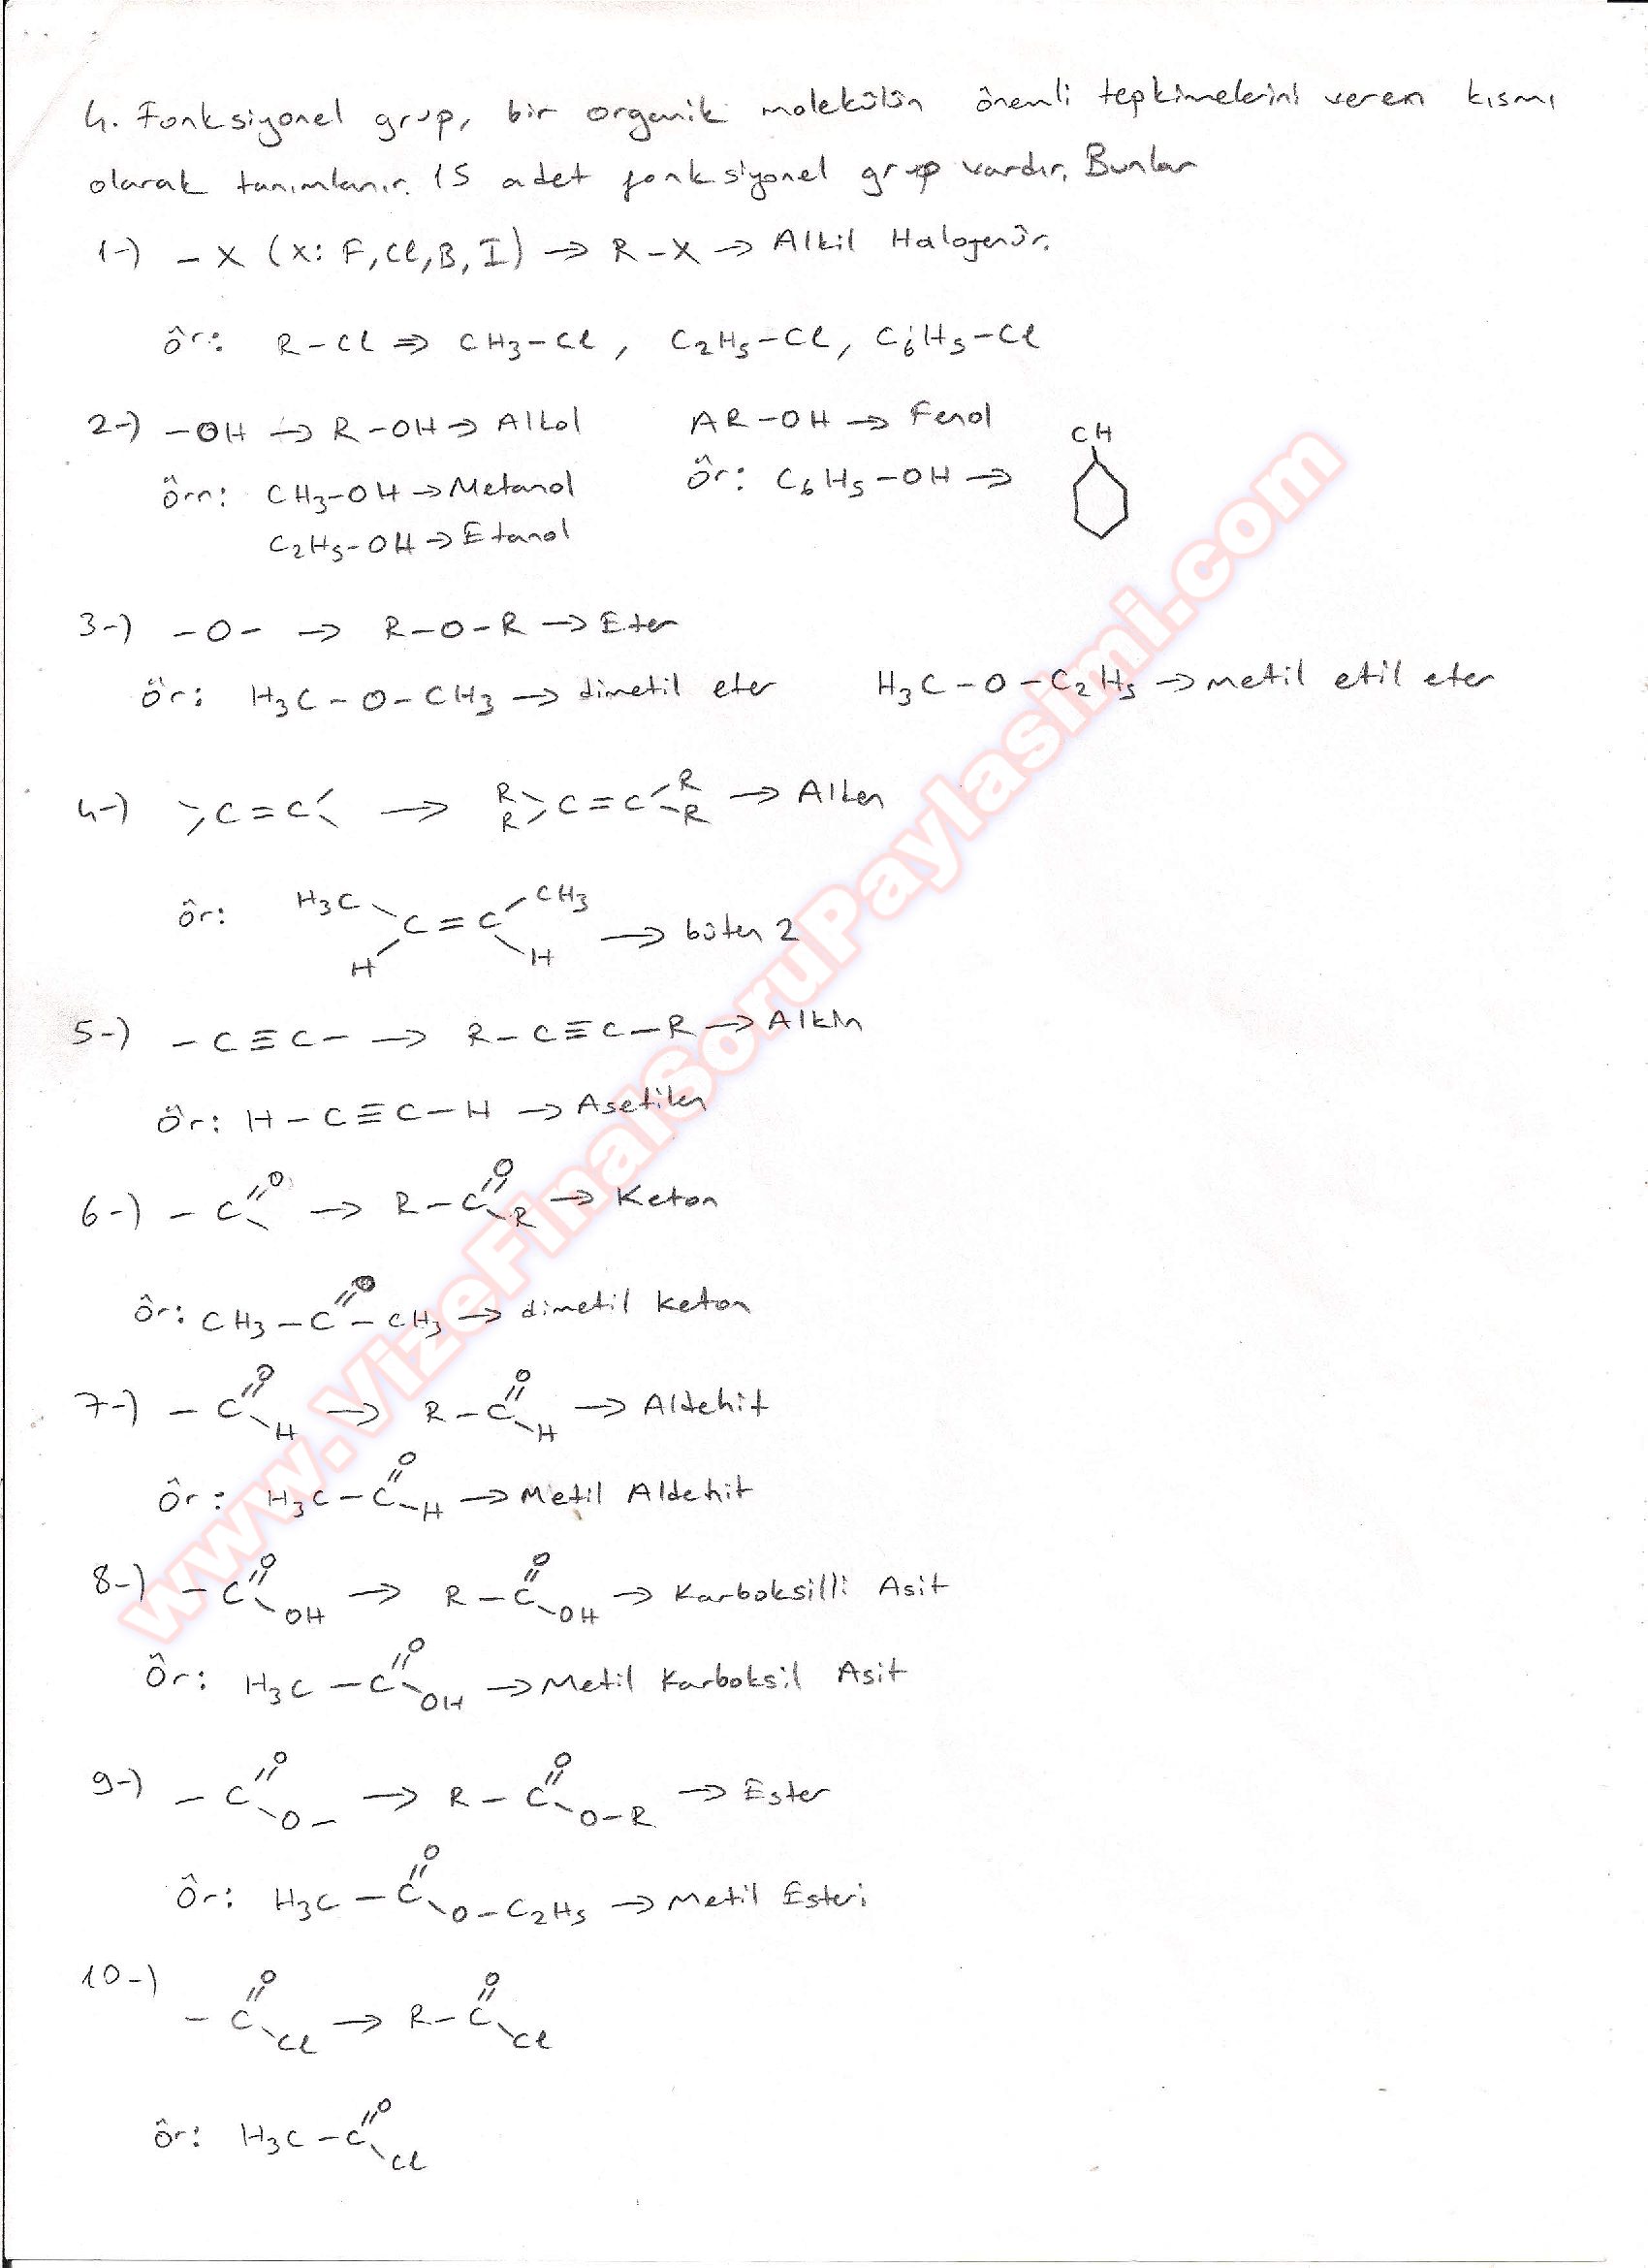 4. Fonksiyonel grup, bir organik molekülün önemli tepkimelerini veren kısmı
olarak tanımlanır. 15 adet fonksiyonel grup vardır. Bunlar
1-) -X (X: F, Cl, B, I) → R-X → Alkil Halojenür.
Ör: R-Cl ⇒ CH3-Cl, C2H5-Cl, C6H5-Cl
2-) -OH → R-OH → Alkol AR-OH → Fenol
Örn: CH3-OH → Metanol Ör: C6H5-OH → CH
C2H5-OH → Etanol
3-) -O- → R-O-R → Eter
Ör: H3C-O-CH3 → dimetil eter H3C-O-C2H5 → metil etil eter
4-) >C=C< → R R >C=C< R R → Alken
Ör: H3C H >C=C< CH3 H → büten 2
5-) -C≡C- → R-C≡C-R → Alkin
Ör: H-C≡C-H → Asetilen
6-) -C=O → R-C=O R → Keton
Ör: CH3-C=O-CH3 → dimetil keton
7-) -C=O H → R-C=O H → Aldehit
Ör: H3C-C=O H → Metil Aldehit
8-) -C=O OH → R-C=O OH → Karboksilli Asit
Ör: H3C-C=O OH → Metil Karboksil Asit
9-) -C=O O- → R-C=O O-R → Ester
Ör: H3C-C=O O-C2H5 → Metil Esteri
10-) -C=O Cl → R-C=O Cl
Ör: H3C-C=O Cl
www.VizeFinalSoruPaylasimi.com